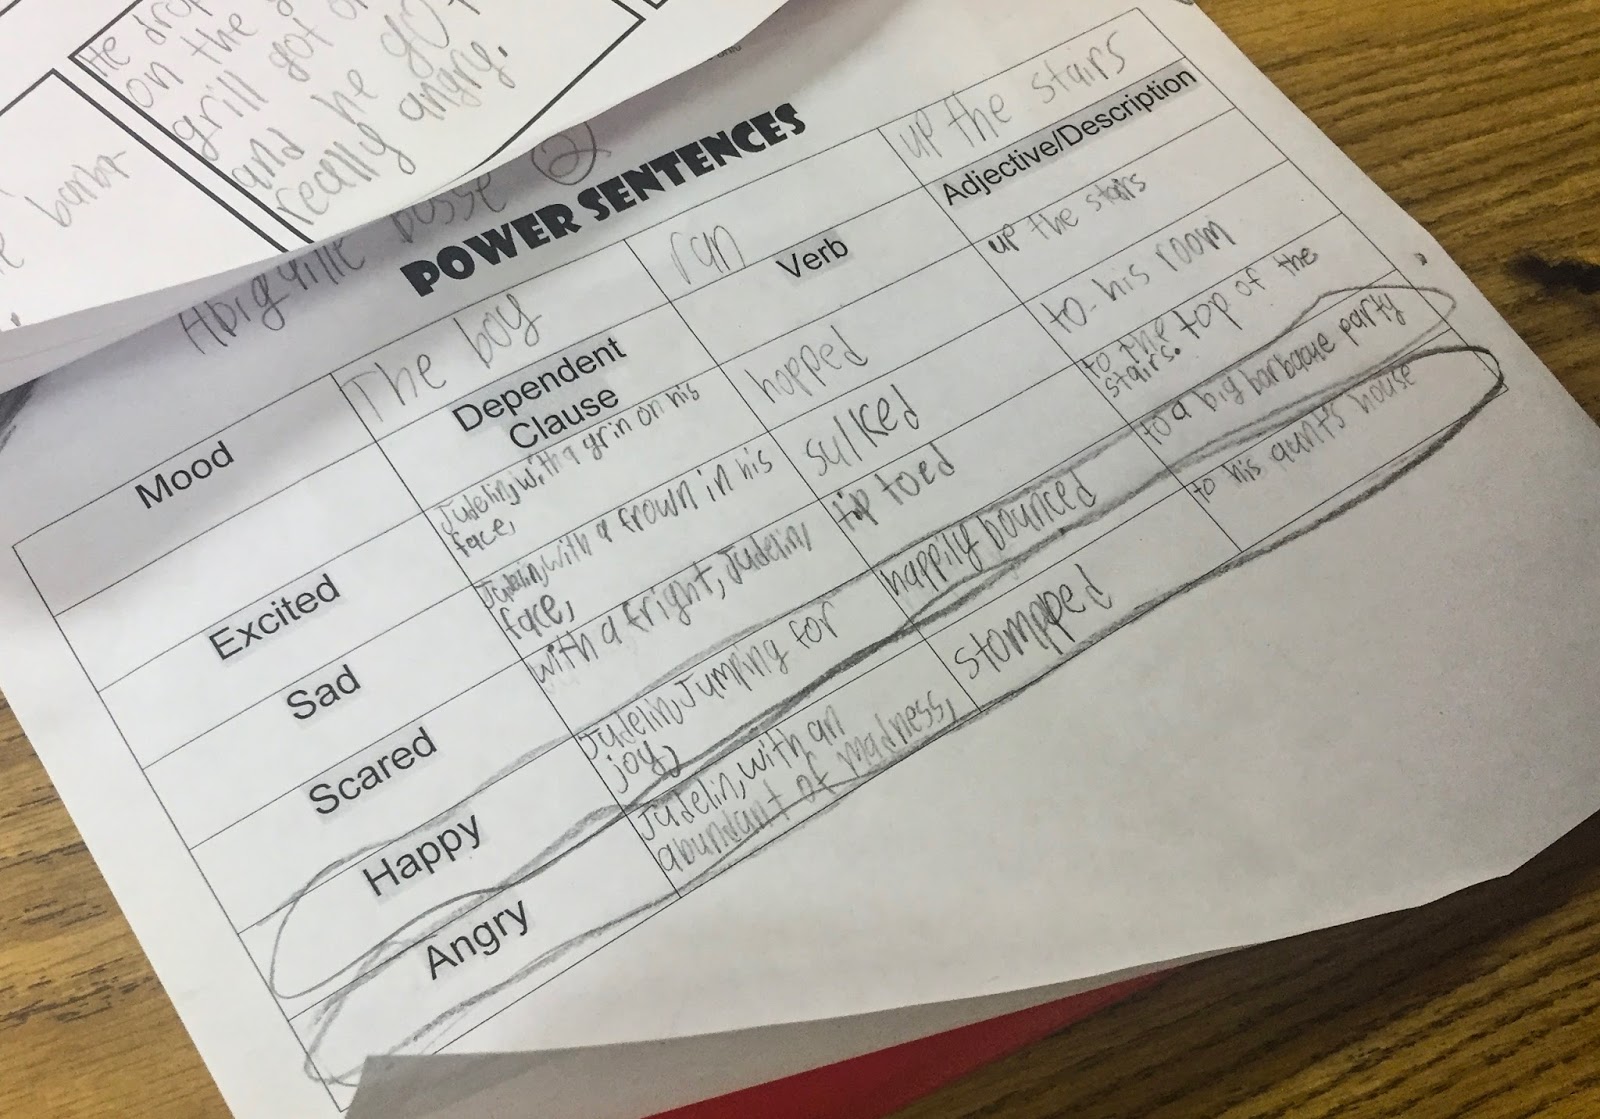 He drop
on the g
grill got on
and he got
really angry.
barbr
Abigaille Bosse
POWER SENTENCES
The boy
ran
up the stairs
Mood
Dependent
Clause
Verb
Adjective/Description
Excited
Judelin, with a grin on his
face,
hopped
up the stairs
Sad
Judelin, with a frown in his
face,
sulked
to his room
Scared
with a fright, Judelin,
tip toed
to the top of the
stairs.
Happy
Judelin, Jumping for
joy,
happily bounced
to a big barbaque party
Angry
Judelin, with an
abundant of madness,
stompped
to his aunt's house